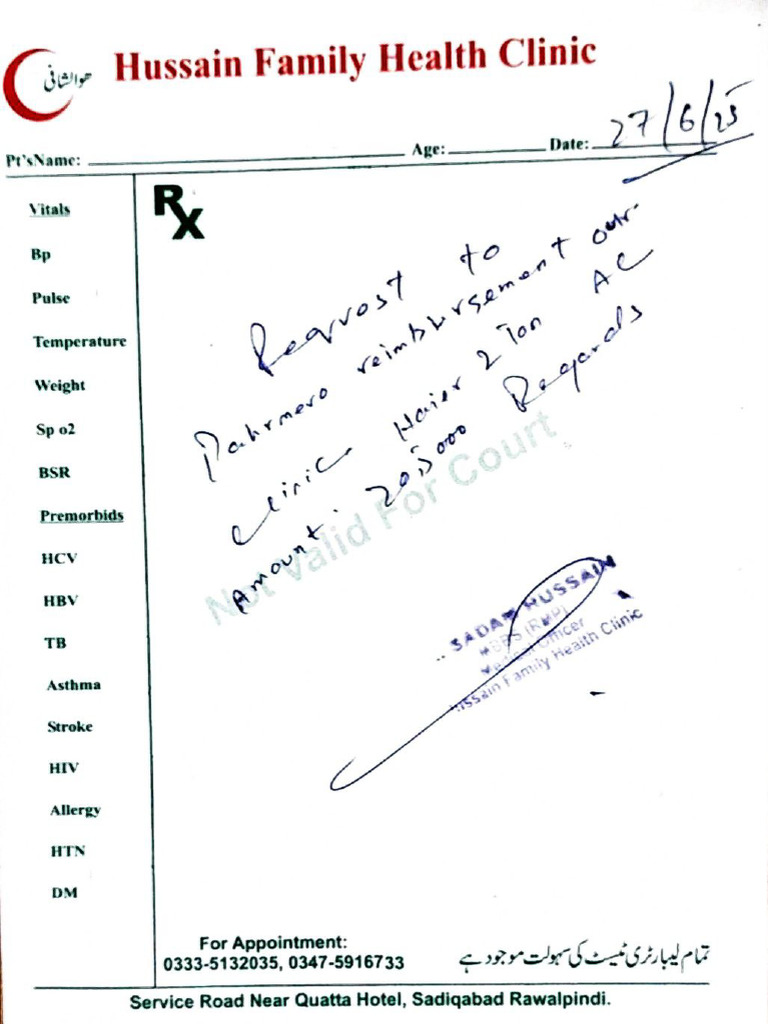 هوالشافی
Hussain Family Health Clinic
Pt's Name: Age: Date: 27/6/25
Vitals
Bp
Pulse
Temperature
Weight
Sp o2
BSR
Premorbids
HCV
HBV
TB
Asthma
Stroke
HIV
Allergy
HTN
DM
Rx
Request to
Pahrmevo reimbursement our
clinic Haier 2 Ton AC
Amount. 205000 Regards
Not Valid For Court
SADAM HUSSAIN
MBBS (RMP)
Medical Officer
Hussain Family Health Clinic
For Appointment:
0333-5132035, 0347-5916733
تمام لیبارٹری ٹیسٹ کی سہولت موجود ہے
Service Road Near Quatta Hotel, Sadiqabad Rawalpindi.